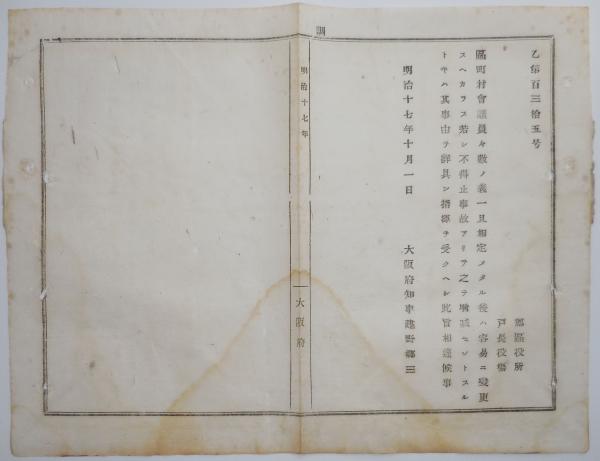 乙第百三拾五号
郡區役所
戸長役塲
區町村會議員々數ノ義一旦相定メタル後ハ容易ニ變更
スヘカラス若シ不得止事故アリテ之ヲ增减セントスル
トキハ其事由ヲ詳具シ指揮ヲ受クヘシ此旨相達候事
明治十七年十月一日
大阪府知事建野郷三
明治十七年
大阪府